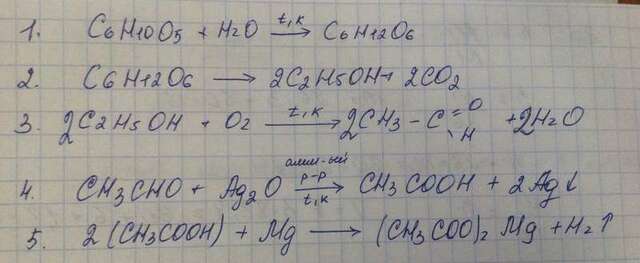 1. C6H10O5 + H2O t,к → C6H12O6
2. C6H12O6 → 2C2H5OH + 2CO2
3. 2C2H5OH + O2 t,к → 2CH3 - C =O \ H + 2H2O
4. CH3CHO + Ag2O р-р t,к → CH3COOH + 2Ag↓
5. 2(CH3COOH) + Mg → (CH3COO)2 Mg + H2↑